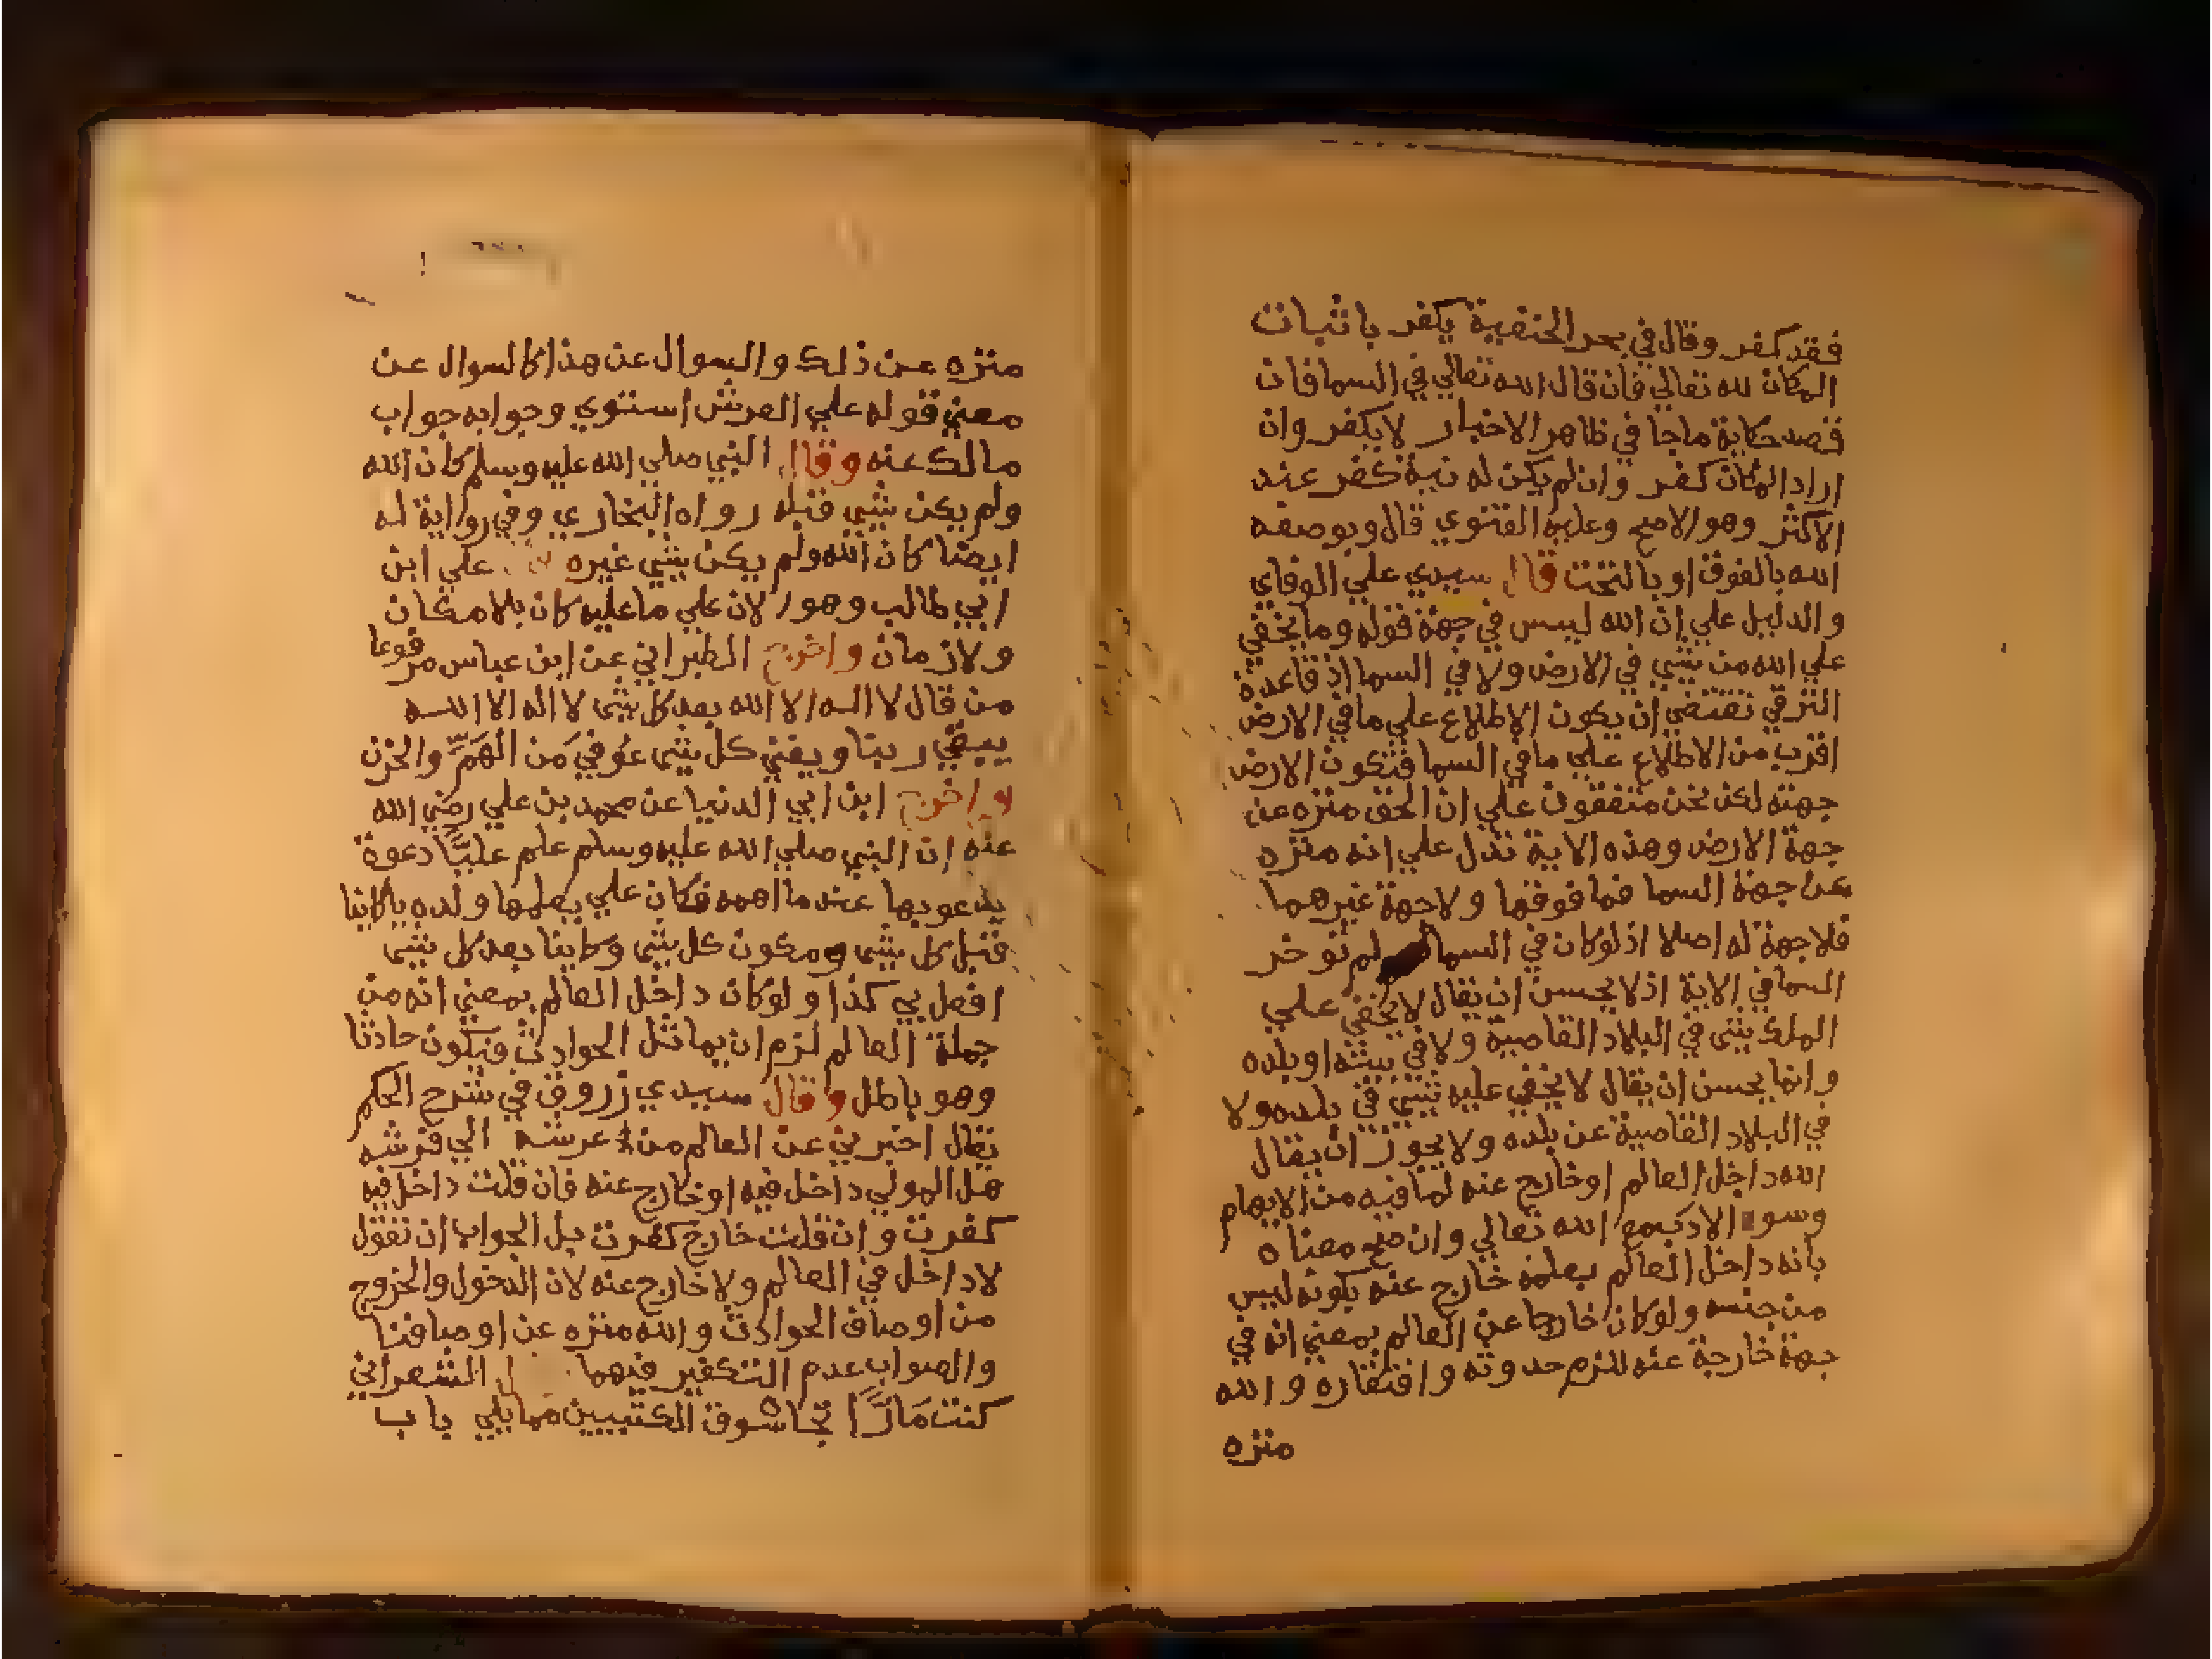 فقد كفر وقال في بحر الحنفية يكفر باثبات
المكان لله تعالي فان قال الله تعالي في السما فان
قصد حكاية ماجا في ظاهر الاخبار لا يكفر وان
اراد المكان كفر وان لم يكن له نية كفر عند
الاكثر وهو الاصح وعليه الفتوي قال وبوصفه
الله بالفوق او بالتحت قال سيدي علي الوفاي
والدليل علي ان الله ليس في جهة قوله وما يخفي
علي الله من شي في الارض ولا في السما اذ قاعدة
الترقي تقتضي ان يكون الاطلاع علي ما في الارض
اقرب من الاطلاع علي ما في السما فتكون الارض
جهته لكن نحن متفقون علي ان الحق منزه عن
جهة الارض وهذه الاية تدل علي انه منزه
عن جهة السما فما فوقها ولا جهة غيرهما
فلا جهة له اصلا اذ لو كان في السما لم توخر
السما في الاية اذ لا يحسن ان يقال لا يخفي علي
الملك شي في البلاد القاصية ولا في بيته او بلده
وانما يحسن ان يقال لا يخفي عليه شي في بلده ولا
في البلاد القاصية عن بلده ولا يجوز ان يقال
الله داخل العالم او خارج عنه لما فيه من الايهام
وسو الادب مع الله تعالي وان صح معناه
بانه داخل العالم بعلمه خارج عنه بكونه ليس
من جنسه ولو كان خارجا عن العالم بمعني انه في
جهة خارجة عنه للزم حدوثه وافتقاره والله
منزه
منزه عن ذلك والسوال عن هذا كالسوال عن
معني قوله علي العرش استوي وجوابه جواب
مالك عنه وقال النبي صلي الله عليه وسلم كان الله
ولم يكن شي قبله رواه البخاري وفي رواية له
ايضا كان الله ولم يكن شي غيره علي ابن
ابي طالب وهو الان علي ما عليه كان بلا مكان
ولا زمان واخرج الطبراني عن ابن عباس مرفوعا
من قال لا اله الا الله بعد كل شي لا اله الا الله
يبقي ربنا ويفني كل شي عوفي من الهَمِّ والحزن
واخرج ابن ابي الدنيا عن محمد بن علي رضي الله
عنه ان النبي صلي الله عليه وسلم علم عليًّا دعوة
يدعو بها عند ما اهمه فكان علي يعلمها ولده يا كاينا
قبل كل شي ومكون كل شي وكاينا بعد كل شي
افعل بي كذا ولو كان داخل العالم بمعني انه من
جملة العالم لزم ان يماثل الحوادث فيكون حادثا
وهو باطل وقال سيدي زروق في شرح الحكم
يقال اخبرني عن العالم من عرشه الي فرشه
هل المولي داخل فيه او خارج عنه فان قلت داخل فيه
كفرت وان قلت خارج كفرت بل الجواب ان تقول
لا داخل في العالم ولا خارج عنه لان الدخول والخروج
من اوصاف الحوادث والله منزه عن اوصافنا
والصواب عدم التكفير فيهما الشعراني
كنت مَارًّا تجا سوق الكتبيين مما يلي باب